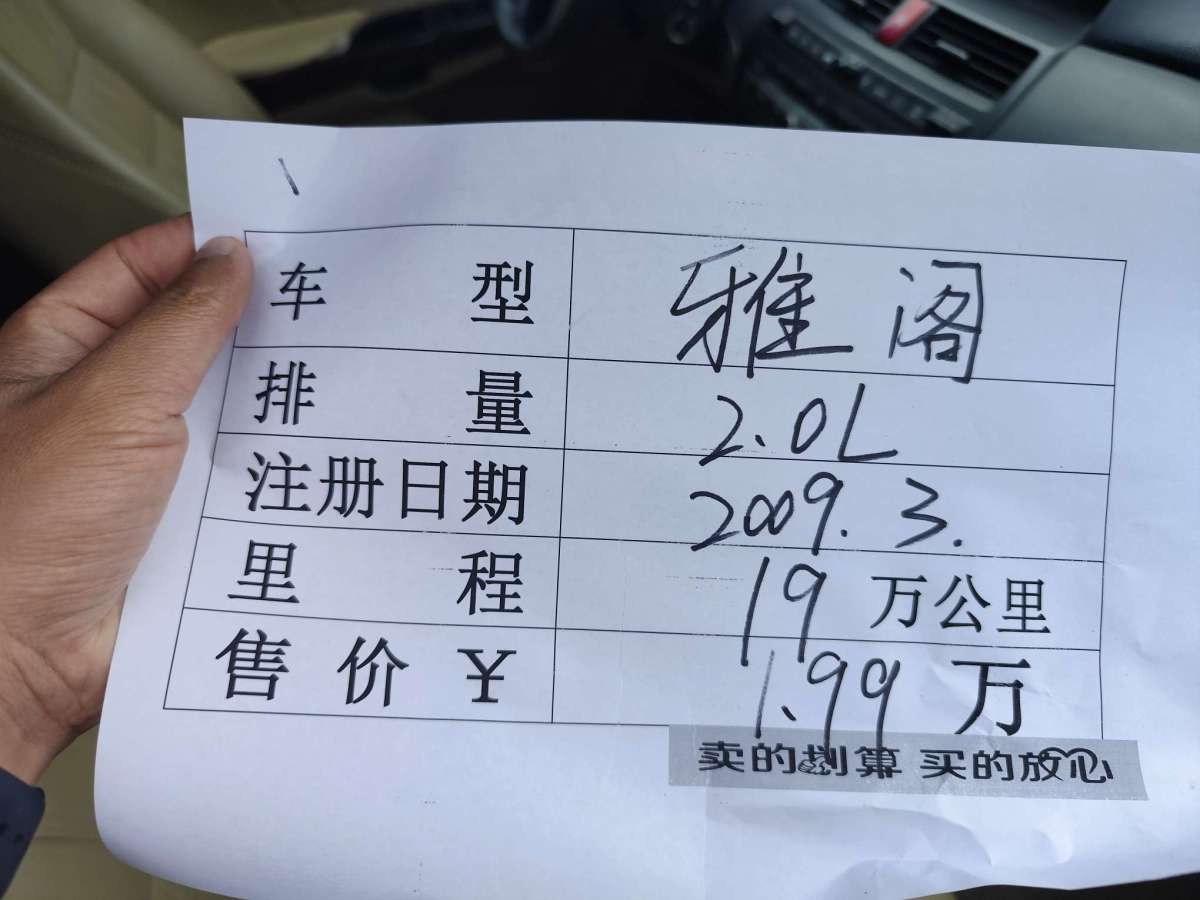 车型 雅阁
排量 2.0L
注册日期 2009.3.
里程 19万公里
售价￥ 1.99万
卖的划算 买的放心